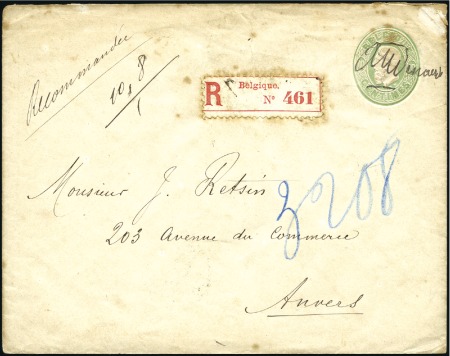 Recommandée
Belgique.
R No 461
Monsieur J. Retsin
203 Avenue du Commerce
Anvers
3208